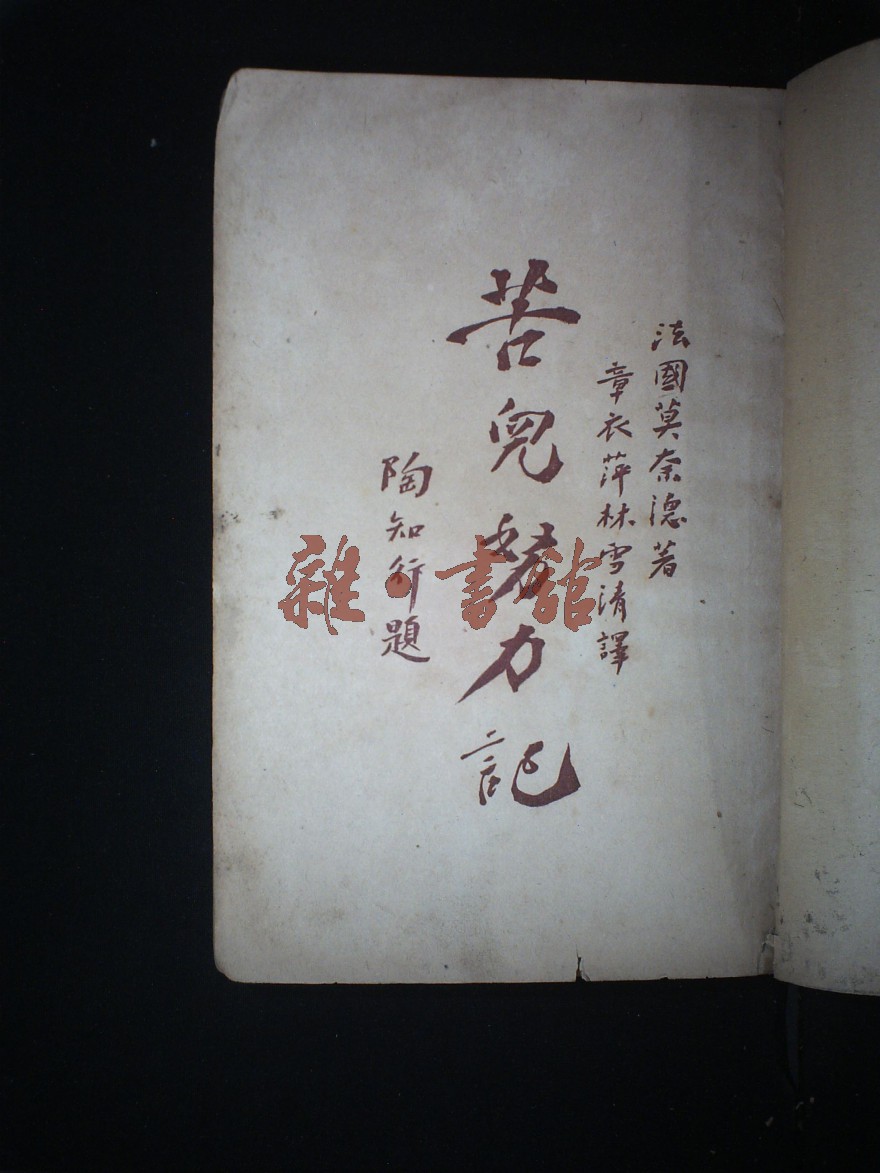 法國莫奈德著
章衣萍林雪清譯
苦兒努力記
陶知行題
雜·書館